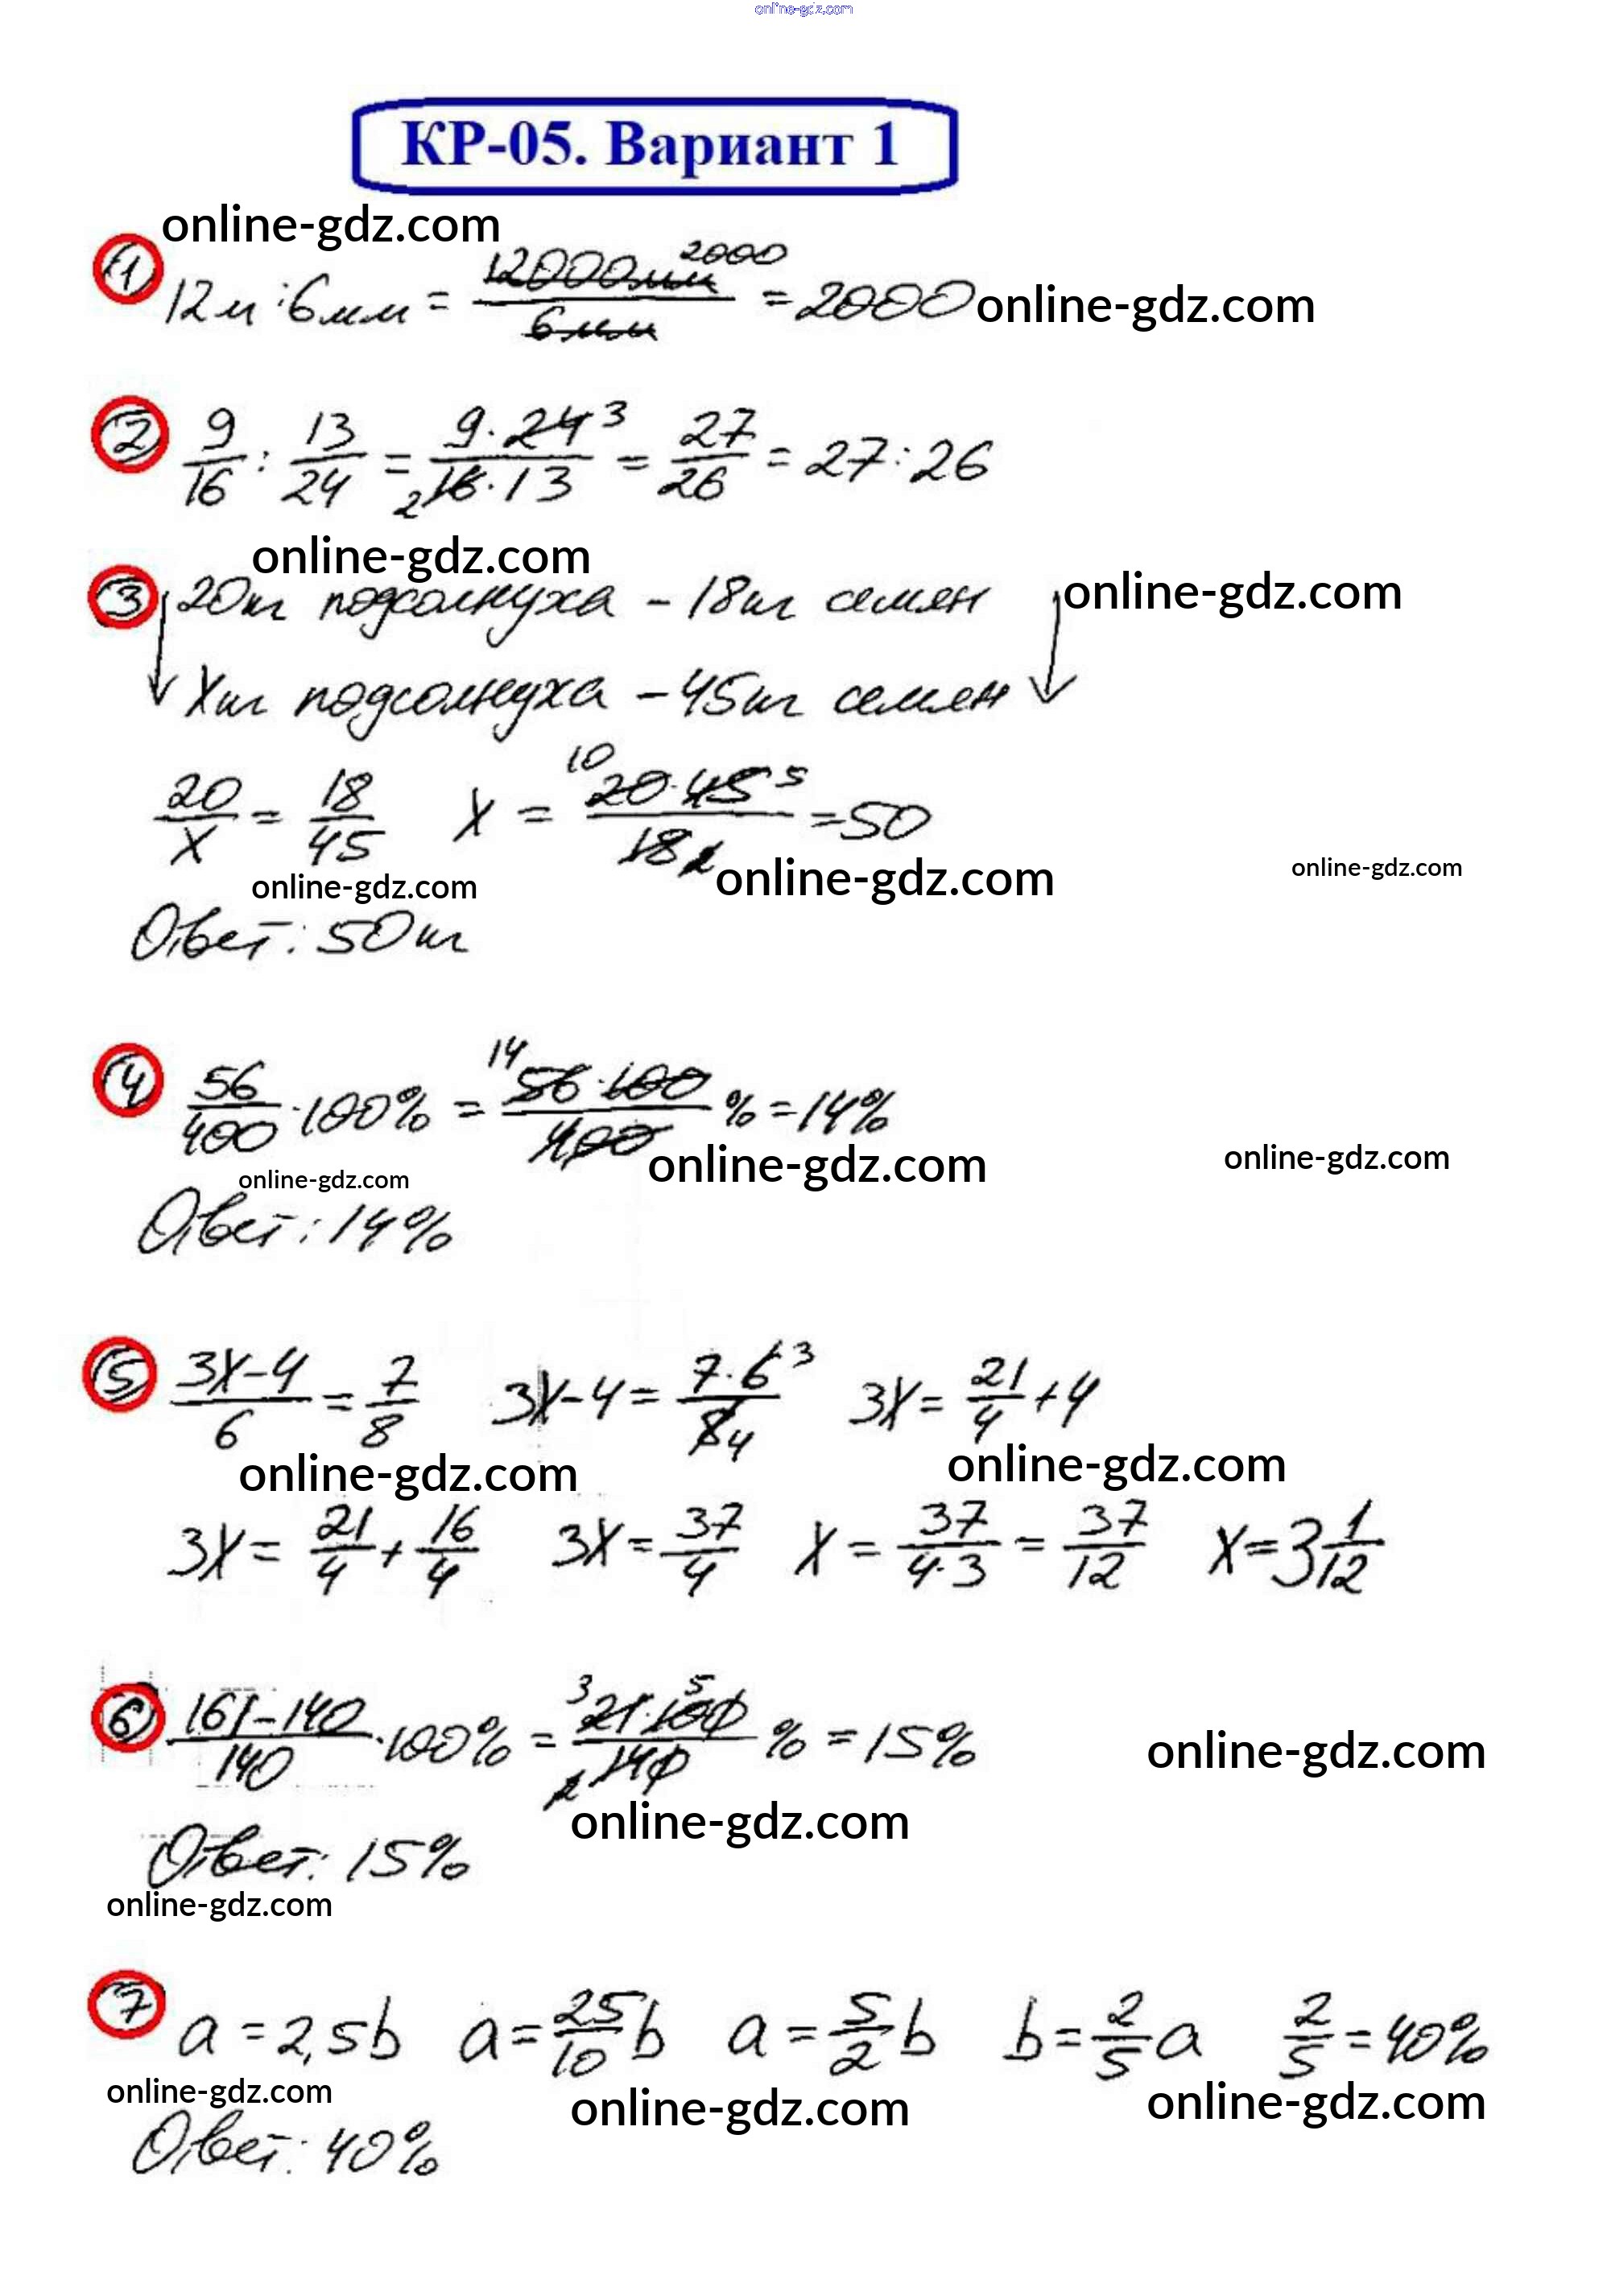 online-gdz.com
КР-05. Вариант 1
online-gdz.com
1 12м : 6мм = 12000мм 2000 / 6мм = 2000 online-gdz.com
2 9/16 : 13/24 = 9·24 3 / 2 16·13 = 27/26 = 27:26
online-gdz.com
3 20кг подсолнуха – 18кг семян online-gdz.com
Xкг подсолнуха – 45кг семян
20/X = 18/45 X = 10 20·45 5 / 18 2 = 50
online-gdz.com online-gdz.com online-gdz.com
Ответ: 50кг
4 56/400 · 100% = 14 56·100 / 400 % = 14%
online-gdz.com online-gdz.com online-gdz.com
Ответ: 14%
5 3X-4/6 = 7/8 3X-4 = 7·6 3 / 8 4 3X = 21/4 + 4
online-gdz.com online-gdz.com
3X = 21/4 + 16/4 3X = 37/4 X = 37/4·3 = 37/12 X = 3 1/12
6 161-140/140 · 100% = 3 21·100 5 / 2 140 % = 15% online-gdz.com
online-gdz.com
Ответ: 15%
online-gdz.com
7 a = 2,5b a = 25/10 b a = 5/2 b b = 2/5 a 2/5 = 40%
online-gdz.com online-gdz.com online-gdz.com
Ответ: 40%